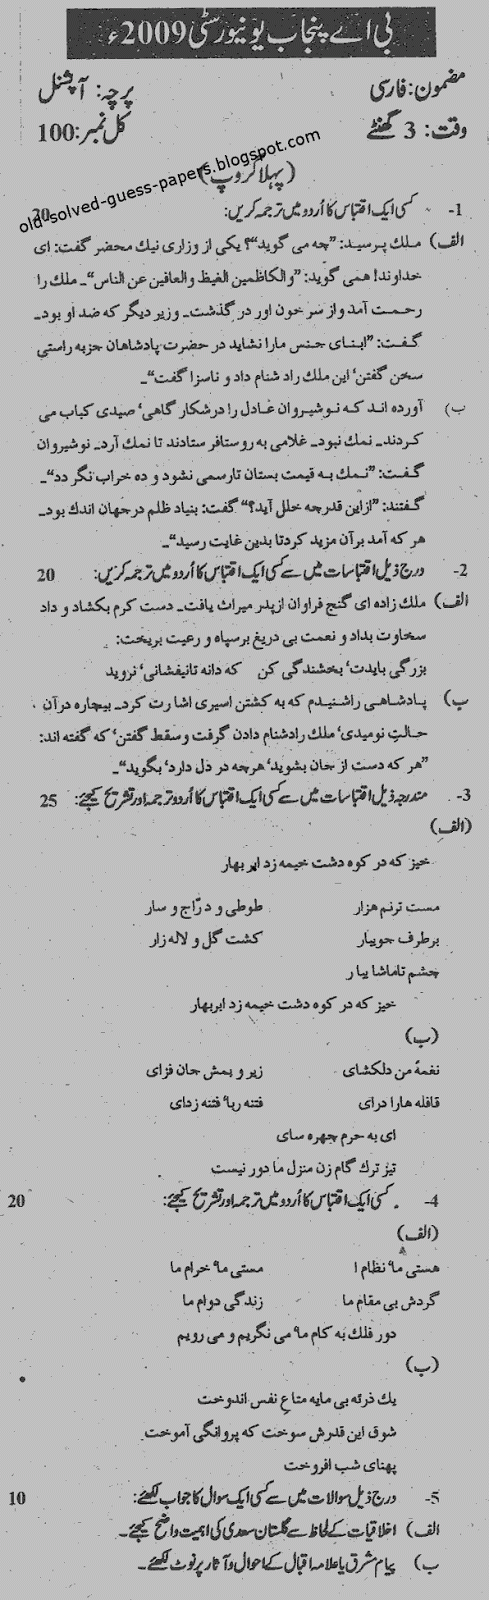 بی اے پنجاب یونیورسٹی 2009ء
مضمون: فارسی پرچہ: آپشنل
وقت: 3 گھنٹے کل نمبر: 100
old-solved-guess-papers.blogspot.com
(پہلا گروپ)
1- کسی ایک اقتباس کا اُردو میں ترجمہ کریں: 20
الف) ملک پرسید: ”چہ می گوید“؟ یکی از وزاری نیک محضر گفت: ای
خداوند! ھمی گوید: ”والکاظمین الغیظ والعافین عن الناس“۔ ملک را
رحمت آمد واز سر خون اور در گذشت۔ وزیر دیگر کہ ضد او بود۔
گفت: ”ابنای جنس مارا نشاید در حضرت پادشاھان جزبہ راستی
سخن گفتن‘ این ملک راد شنام داد و ناسزا گفت“۔
ب) آوردہ اند کہ نوشیروان عادل را درشکار گاھی‘ صیدی کباب می
کردند۔ نمک نبود۔ غلامی بہ روستافر ستادند تا نمک آرد۔ نوشیروان
گفت: ”نمک بہ قیمت بستان تارسمی نشود و دہ خراب نگر دد“۔
گفتند: ”ازاین قدرچہ خلل آید؟“ گفت: بنیاد ظلم درجھان اندک بود۔
ھر کہ آمد برآن مزید کردتا بدین غایت رسید“۔
2- درج ذیل اقتباسات میں سے کسی ایک اقتباس کا اُردو میں ترجمہ کریں: 20
(الف) ملک زادہ ای گنج فراوان ازپدر میراث یافت۔ دست کرم بکشاد و داد
سخاوت بداد و نعمت بی دریغ برسپاہ و رعیت بریخت:
بزرگی بایدت‘ بخشندگی کن کہ دانہ تانیفشانی‘ نروید
ب) پادشاھی راشنیدم کہ بہ کشتن اسیری اشا رت کرد۔ بیچارہ درآن
حالتِ نومیدی‘ ملک رادشنام دادن گرفت و سقط گفتن‘ کہ گفتہ اند:
”ھر کہ دست از جان بشوید‘ ھرچہ در دل دارد‘ بگوید“۔
3- مندرجہ ذیل اقتباسات میں سے کسی ایک اقتباس کا اُردو ترجمہ اور تشریح کیجئے: 25
(الف)
خیز کہ در کوہ دشت خیمہ زد ابر بھار
مست ترنم ھزار طوطی و درّاج و سار
برطرف جویبار کشت گل و لالہ زار
چشم تاماشا بیا ر
خیز کہ در کوہ دشت خیمہ زد ابربھار
(ب)
نغمۂ من دلکشای زیر و بمش جان فزای
قافلہ ھارا درای فتنہ ربا‘ فتنہ زدای
ای بہ حرم چھرہ سای
تیز ترک گام زن منزل ما دور نیست
4- کسی ایک اقتباس کا اُردو میں ترجمہ اور تشریح کیجئے: 20
(الف)
ھستی ما‘ نظام ا مستی ما‘ خرام ما
گردش بی مقام ما زندگی دوام ما
دور فلک بہ کام ما‘ می نگریم و می رویم
(ب)
یک ذرّہ بی مایہ متاعِ نفس اندوخت
شوق این قدرش سوخت کہ پروانگی آموخت
پھنای شب افروخت
5- درج ذیل سوالات میں سے کسی ایک سوال کا جواب لکھئے: 10
الف) اخلاقیات کے لحاظ سے گلستان سعدی کی اہمیت واضح کیجئے۔
ب) پیام مشرق یا علامہ اقبال کے احوال و آثار پر نوٹ لکھئے۔